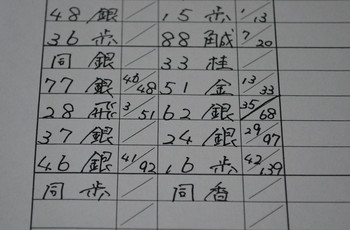 48銀 15歩 1/13
36歩 88角成 7/20
同銀 33桂
77銀 46/48 51金 13/33
28飛 3/51 62銀 35/68
37銀 24銀 29/97
46銀 41/92 16歩 42/139
同歩 同香